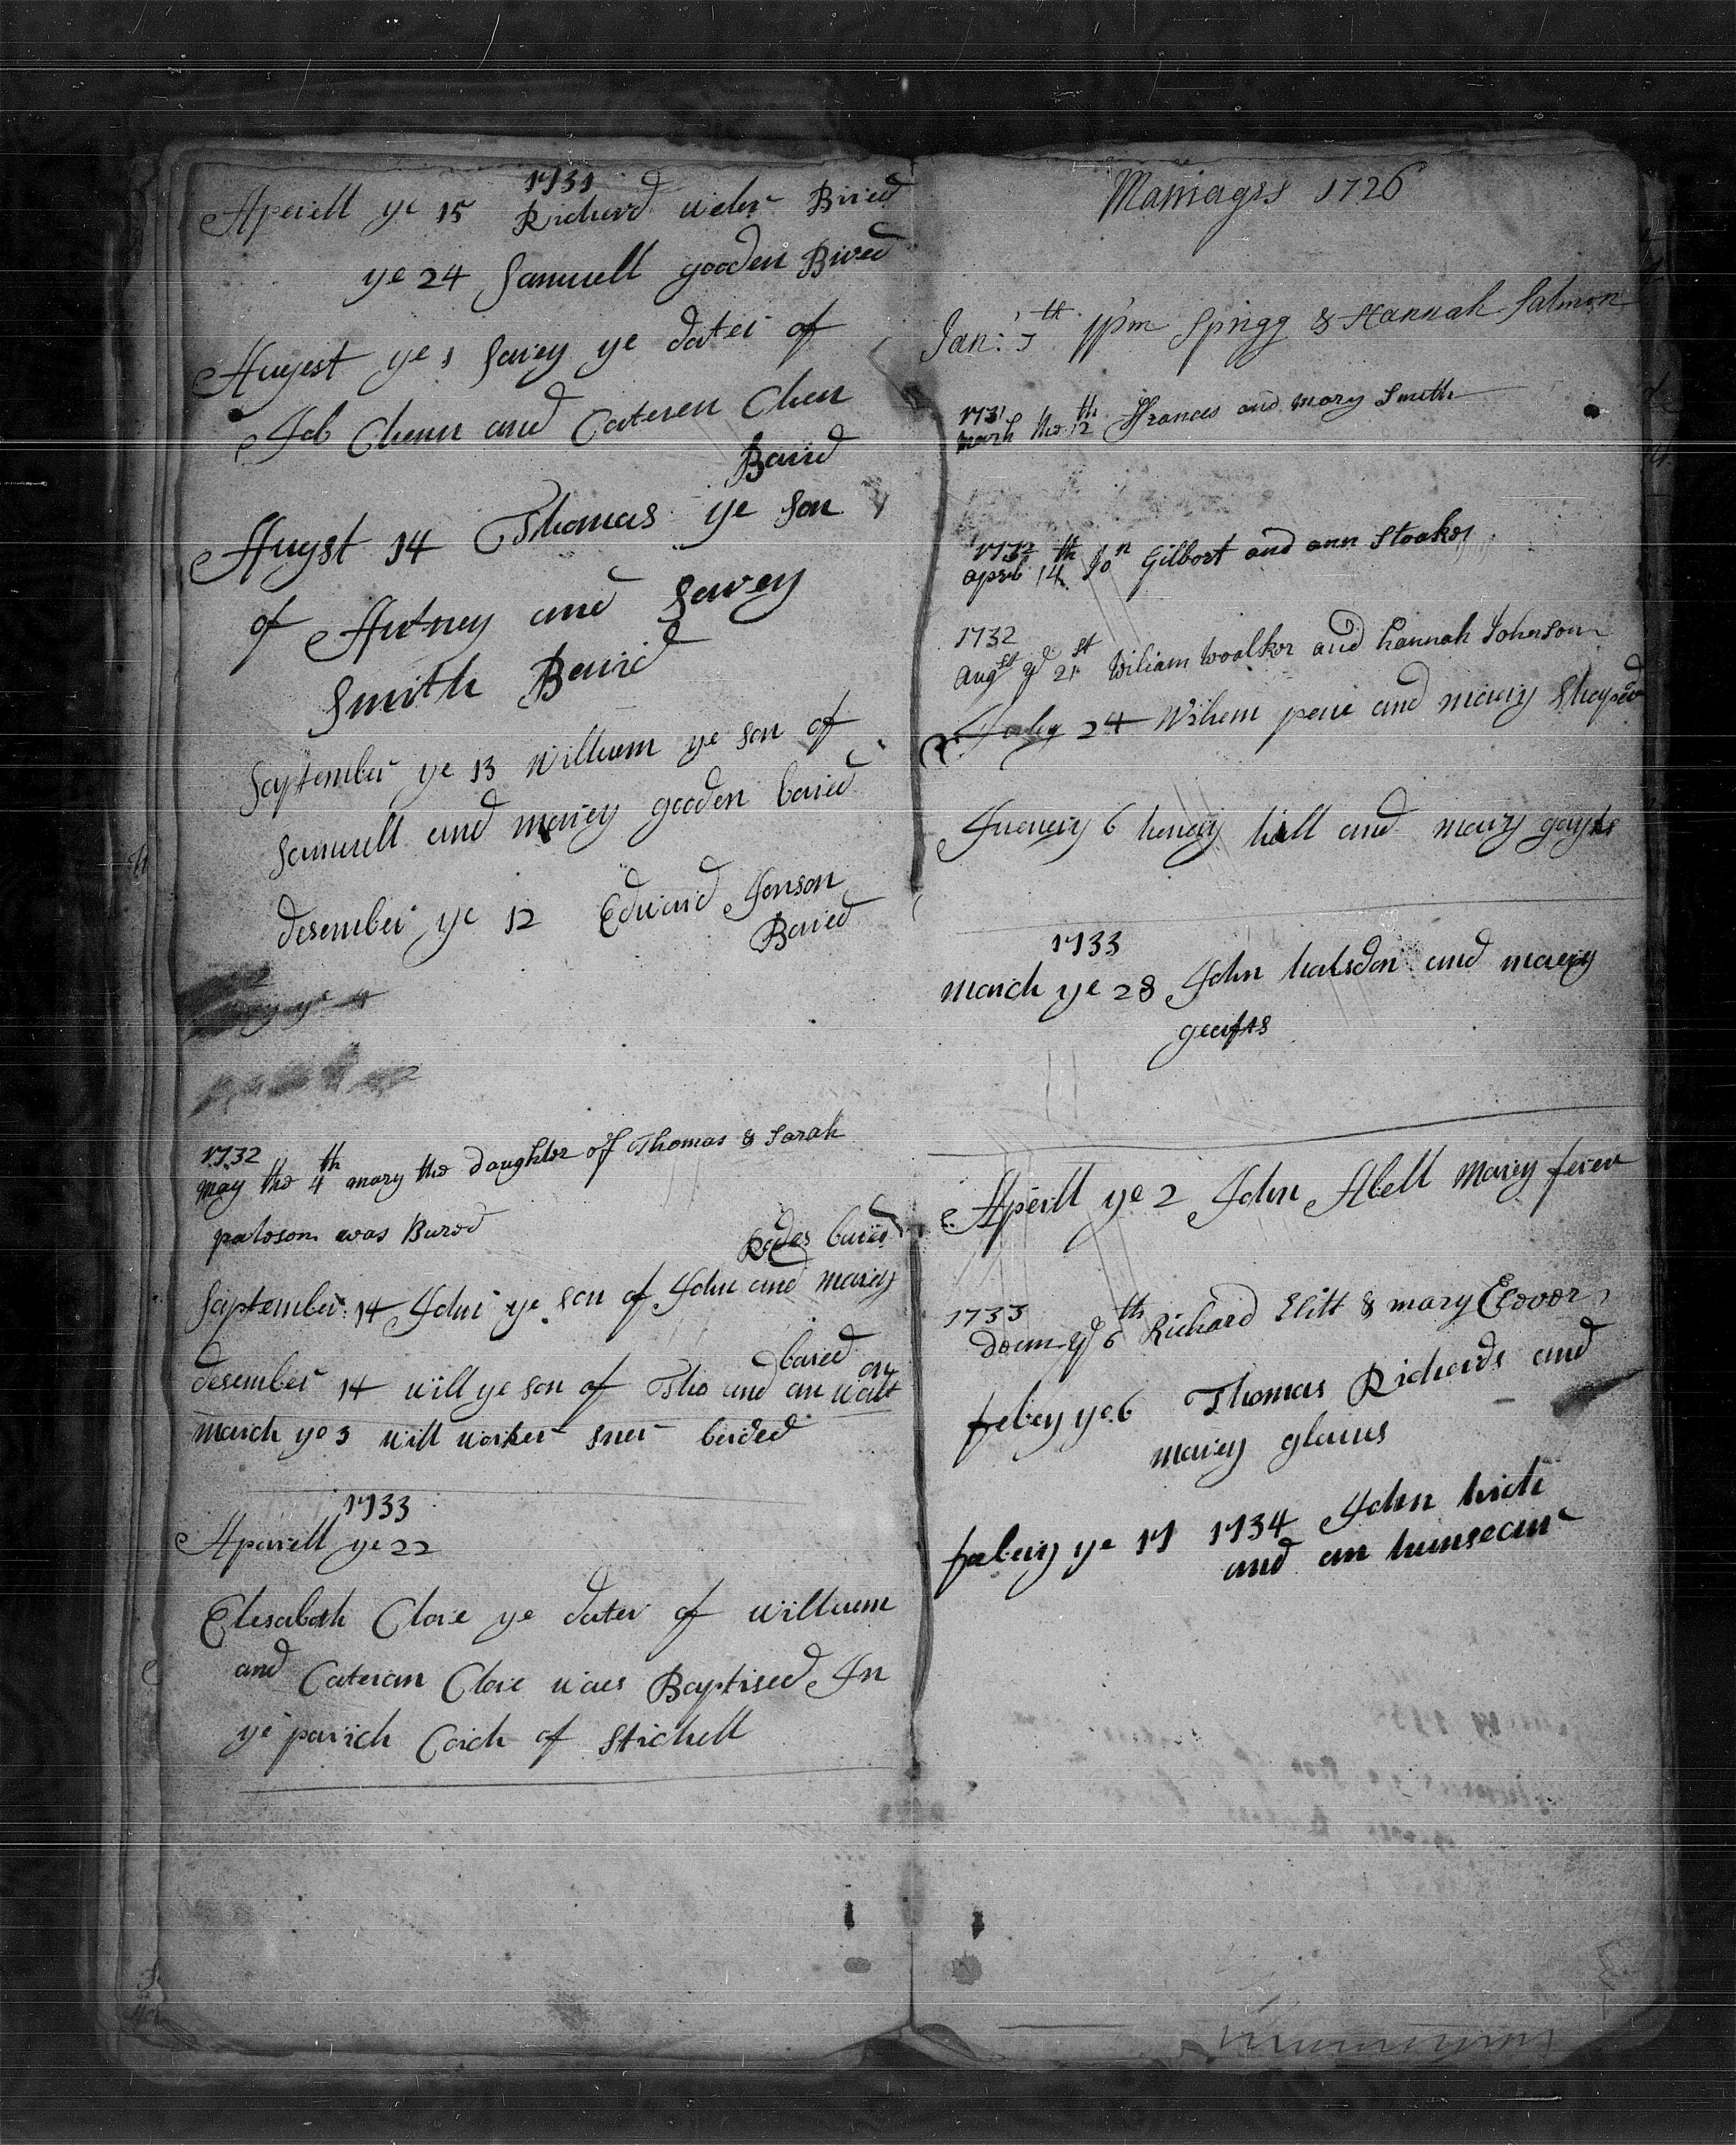 1731
Aperell ye 15 Richard Weler Biried
ye 24 Samuell gooden Bired
Augest ye 1 Sarey ye dater of
Job Chenn and Cateren Chen
Baried
Augst 14 Thomas ye Son
of Antney and Sarey
Smith Baried
September ye 13 William ye son of
Samuell and marey gooden baried
desember ye 12 Edward Jonson
Baried
1732
may the 4th mary the daughter of Thomas & Sarah
pateson was Bured
Rodes buried
September 14 John ye son of John and marey
baried
desember 14 will ye son of Tho and an Watt
march ye 3 will worker buried
1733
Aparell ye 22
Elesabeth Clare ye dater of William
and Cateran Clare waes Baptised In
ye parich Corch of Stichell
Marriages 1726
Jan: 5th Wm Sprigg & Hannah Salmon
1731
march the 12th Frances and mary Smith
1732
april 14th Jon Gilbert and ann Stoakes
1732
Augst ye 21st Wiliam Woalker and hannah Johnson
24 Wiliem and marey Shepard
Jueneiry 6 henery hill and mary
1733
march ye 28 John halsdon and marey
Aperill ye 2 John Abell Marey feren
1733
decm ye 6th Richard Elitt & mary
febery ye 6 Thomas Richerds and
marey
febery ye 17 1734 John hich
and an